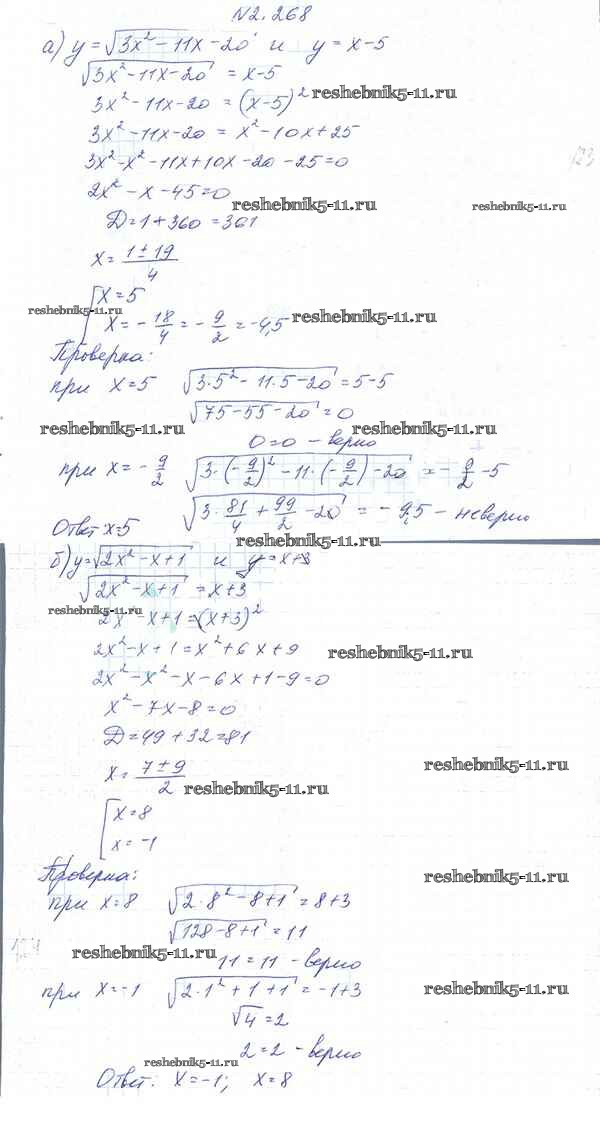 N2.268
а) y = √3x² - 11x - 20 и y = x - 5
√3x² - 11x - 20 = x - 5
3x² - 11x - 20 = (x - 5)²
reshebnik5-11.ru
3x² - 11x - 20 = x² - 10x + 25
3x² - x² - 11x + 10x - 20 - 25 = 0
2x² - x - 45 = 0
reshebnik5-11.ru
reshebnik5-11.ru
D = 1 + 360 = 361
x = (1 ± 19)/4
x = 5
reshebnik5-11.ru
x = - 18/4 = - 9/2 = -4,5
reshebnik5-11.ru
Проверка:
при x = 5 √3·5² - 11·5 - 20 = 5 - 5
√75 - 55 - 20 = 0
reshebnik5-11.ru
reshebnik5-11.ru
0 = 0 - верно
при x = - 9/2 √3·(- 9/2)² - 11·(- 9/2) - 20 = - 9/2 - 5
√3· 81/4 + 99/2 - 20 = - 9,5 - неверно
Ответ x = 5
reshebnik5-11.ru
б) y = √2x² - x + 1 и y = x + 3
√2x² - x + 1 = x + 3
reshebnik5-11.ru
2x² - x + 1 = (x + 3)²
2x² - x + 1 = x² + 6x + 9
reshebnik5-11.ru
2x² - x² - x - 6x + 1 - 9 = 0
x² - 7x - 8 = 0
D = 49 + 32 = 81
reshebnik5-11.ru
x = (7 ± 9)/2
reshebnik5-11.ru
x = 8
x = -1
Проверка:
reshebnik5-11.ru
при x = 8 √2·8² - 8 + 1 = 8 + 3
√128 - 8 + 1 = 11
reshebnik5-11.ru
11 = 11 - верно
при x = -1 √2·1² + 1 + 1 = -1 + 3
reshebnik5-11.ru
√4 = 2
2 = 2 - верно
reshebnik5-11.ru
Ответ: x = -1; x = 8